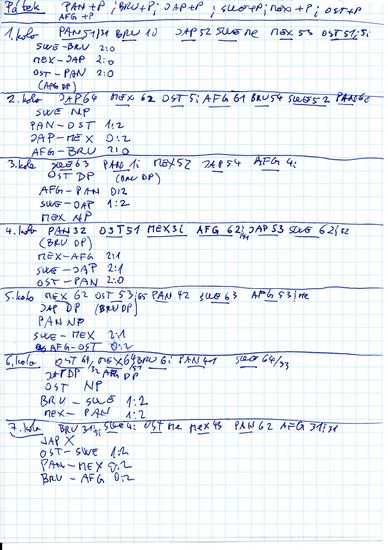 Pátek PAN+P ; BRU+P; JAP+P ; SWE+P; MEX+P; OST+P
AFG+P
1. kolo PAN 51/31 BRU 10 JAP 52 SWE ME MEX 53 OST 51; 5i
SWE-BRU 2:0
MEX-JAP 2:0
OST-PAN 2:0
(AFG DP)
2. kolo JAP 64 MEX 62 OST 5i AFG 61 BRU 54 SWE 52 PAN 60
SWE NP
PAN-OST 1:2
JAP-MEX 0:2
AFG-BRU 2:0
3. kolo SWE 63 PAN 1i MEX 52 JAP 54 AFG 4i
OST DP (BRU DP)
AFG-PAN 0:2
SWE-JAP 1:2
MEX NP
4. kolo PAN 32 OST 51 MEX 3i AFG 62 JAP 53 SWE 62
(BRU DP)
MEX-AFG 2:1
SWE-JAP 2:1
OST-PAN 2:0
5. kolo MEX 62 OST 53 PAN 42 SWE 63 AFG 53; ME
JAP DP (BRU DP)
PAN NP
SWE-MEX 2:1
AFG-OST 0:2
6. kolo OST 61 MEX 64 BRU 6i PAN 41 SWE 64/33
JAP DP AFG DP
OST NP
BRU-SWE 1:2
MEX-PAN 1:2
7. kolo BRU 31 SWE 4i OST ME MEX 43 PAN 62 AFG 31
JAP X
OST-SWE 1:2
PAN-MEX 0:2
BRU-AFG 0:2